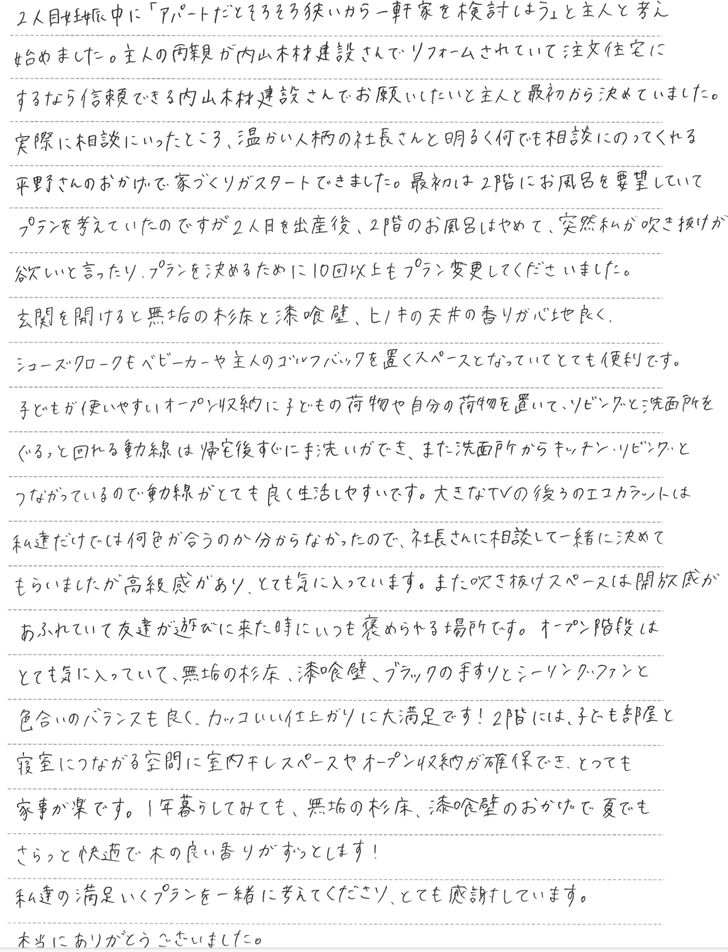 2人目妊娠中に「アパートだとそろそろ狭いから一軒家を検討しよう」と主人と考え
始めました。主人の両親が内山木材建設さんでリフォームされていて注文住宅に
するなら信頼できる内山木材建設さんでお願いしたいと主人と最初から決めていました。
実際に相談にいったところ、温かい人柄の社長さんと明るく何でも相談にのってくれる
平野さんのおかげで家づくりがスタートできました。最初は2階にお風呂を要望していて
プランを考えていたのですが2人目を出産後、2階のお風呂はやめて、突然私が吹き抜けが
欲しいと言ったり、プランを決めるために10回以上もプラン変更してくださいました。
玄関を開けると無垢の杉床と漆喰壁、ヒノキの天井の香りが心地良く、
シューズクロークもベビーカーや主人のゴルフバックを置くスペースとなっていてとても便利です。
子どもが使いやすいオープン収納に子どもの荷物や自分の荷物を置いて、リビングと洗面所を
ぐるっと回れる動線は帰宅後すぐに手洗いができ、また洗面所からキッチン・リビングと
つながっているので動線がとても良く生活しやすいです。大きなTVの後ろのエコカラットは
私達だけでは何色が合うのか分からなかったので、社長さんに相談して一緒に決めて
もらいましたが高級感があり、とても気に入っています。また吹き抜けスペースは開放感が
あふれていて友達が遊びに来た時にいつも褒められる場所です。オープン階段は
とても気に入っていて、無垢の杉床、漆喰壁、ブラックの手すりとシーリングファンと
色合いのバランスも良く、カッコいい仕上がりに大満足です！2階には、子ども部屋と
寝室につながる空間に室内干しスペースやオープン収納が確保でき、とっても
家事が楽です。1年暮らしてみても、無垢の杉床、漆喰壁のおかげで夏でも
さらっと快適で木の良い香りがずっとします！
私達の満足いくプランを一緒に考えてくださり、とても感謝しています。
本当にありがとうございました。